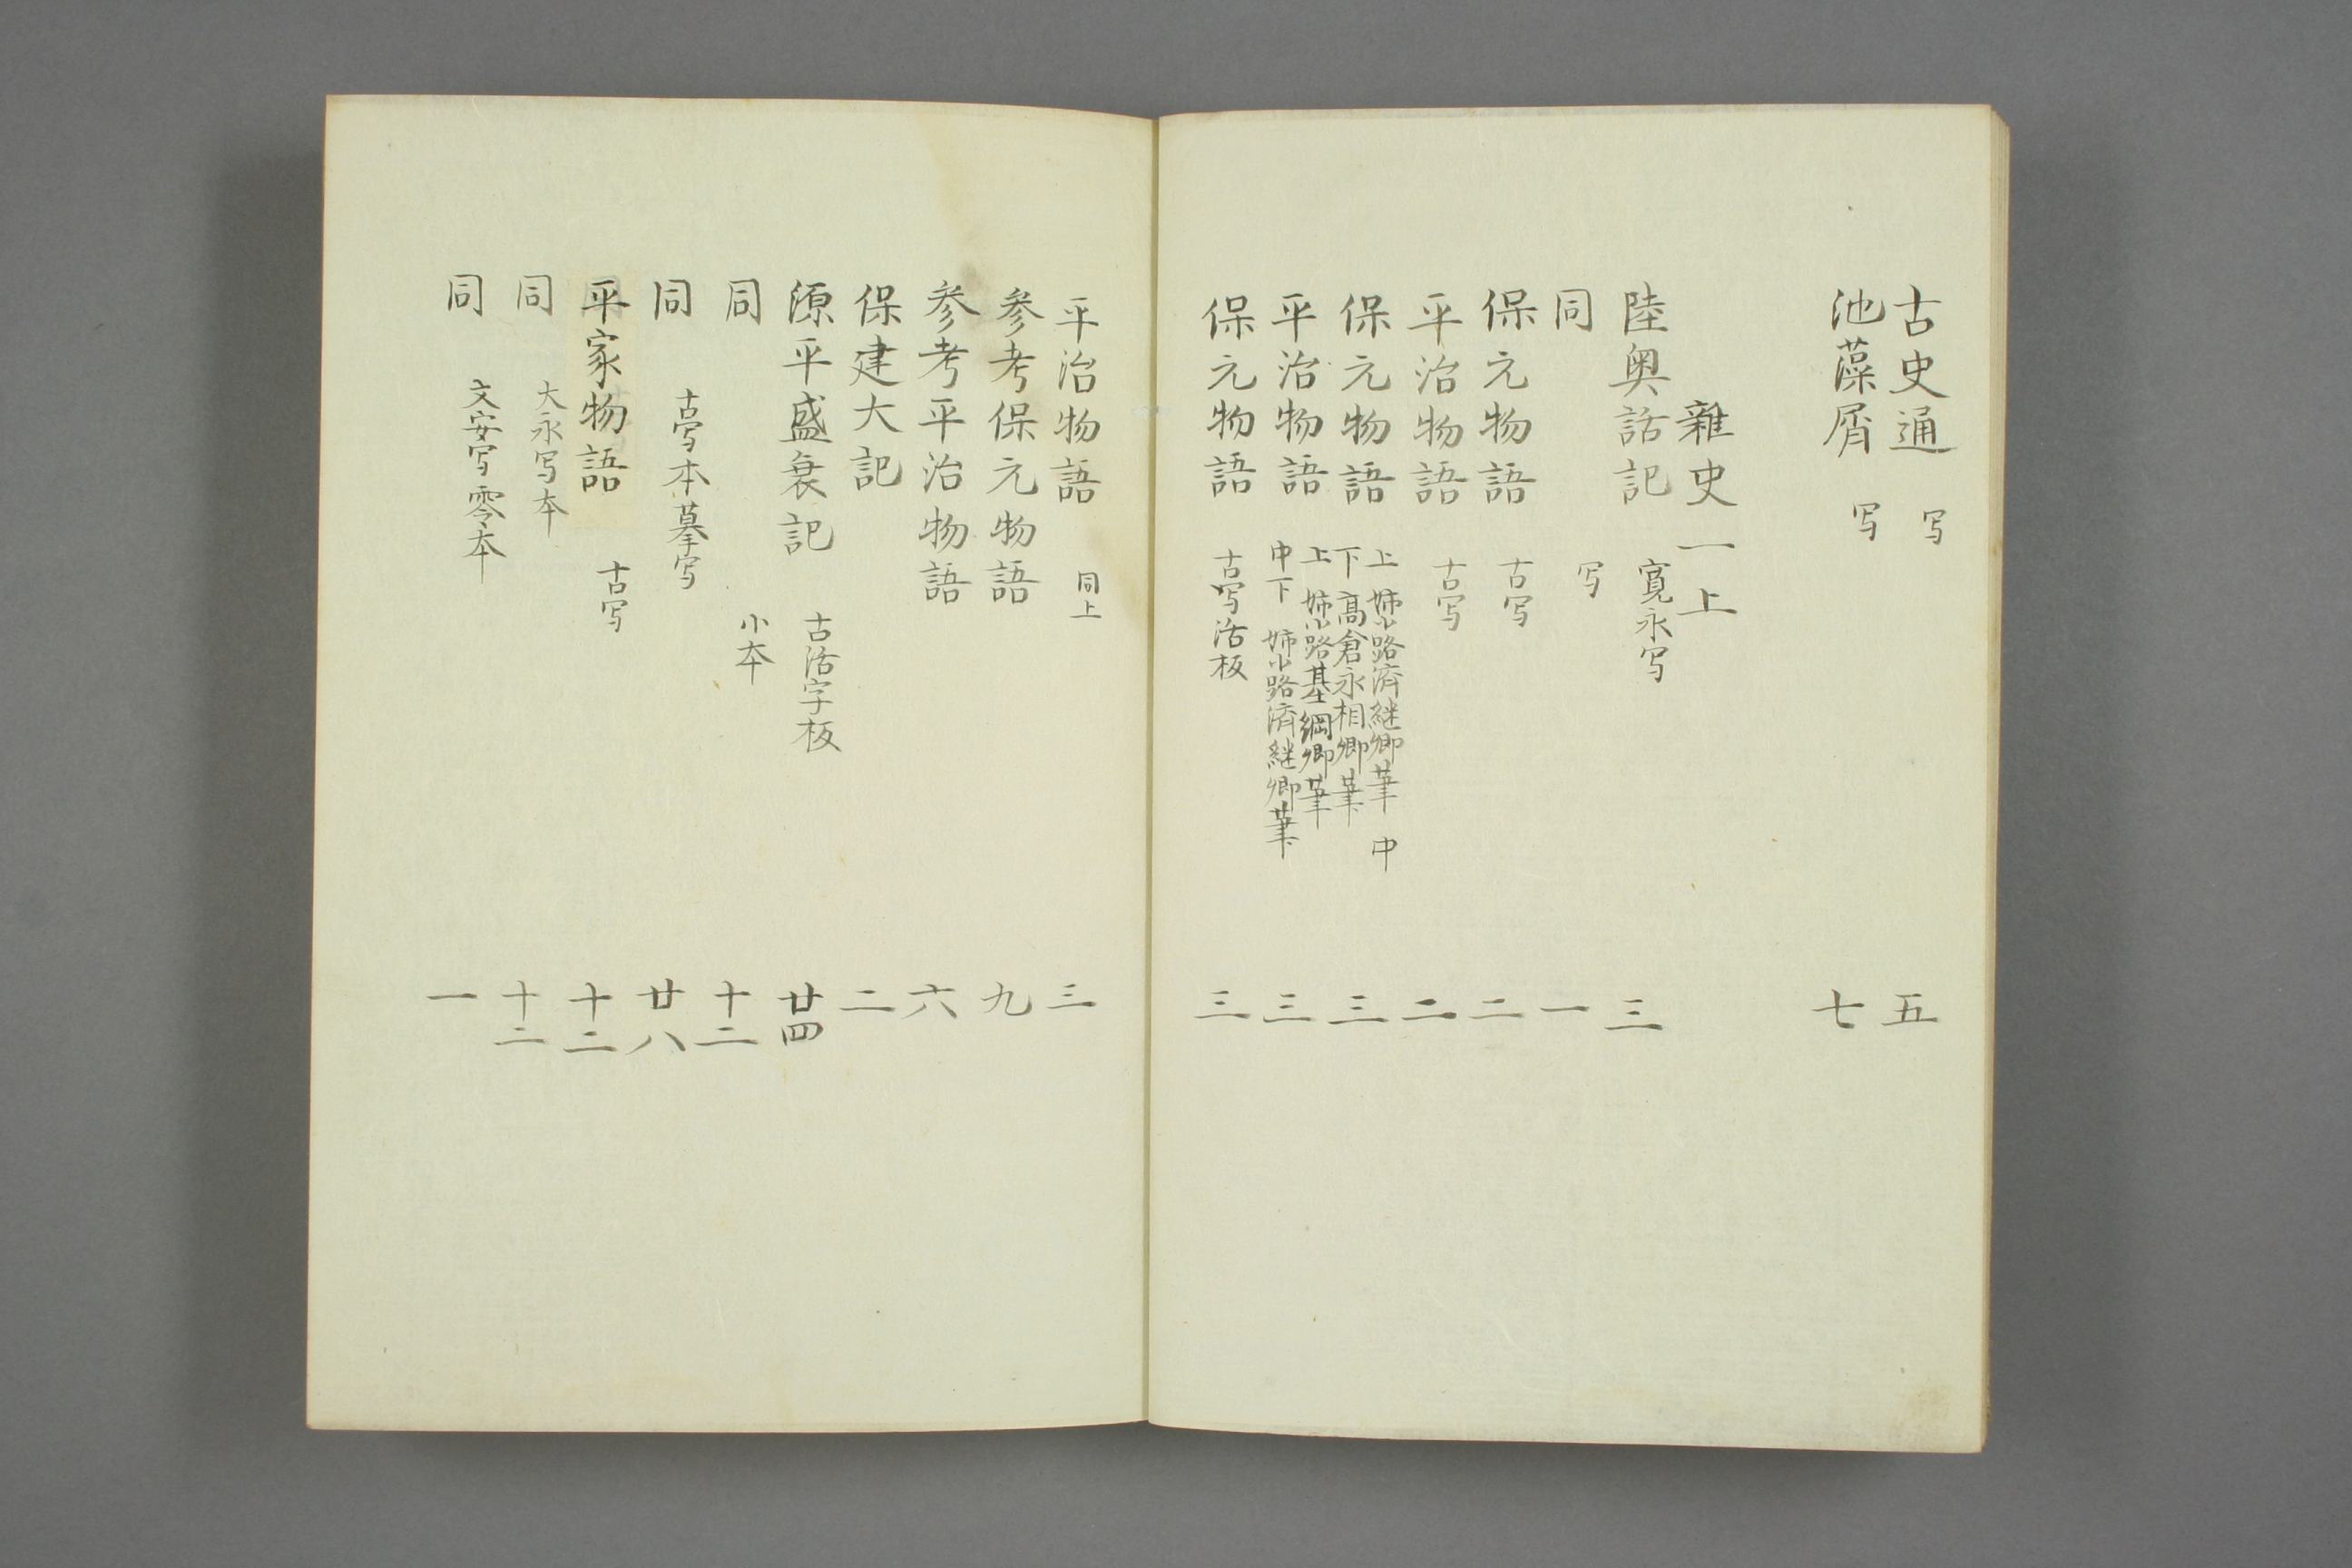 古史通 写 五
池藻屑 写 七
雜史一上
陸奥話記 寛永写 三
同 写 一
保元物語 古写 二
平治物語 古写 二
保元物語 上 姉小路済継卿筆 中
下 高倉永相卿筆 三
平治物語 上 姉小路基綱卿筆
中下 姉小路済継卿筆 三
保元物語 古写活板 三
平治物語 同上 三
参考保元物語 九
参考平治物語 六
保建大記 二
源平盛衰記 古活字板 廿四
同 小本 十二
同 古写本摹写 廿八
平家物語 古写 十二
同 大永写本 十二
同 文安写零本 一